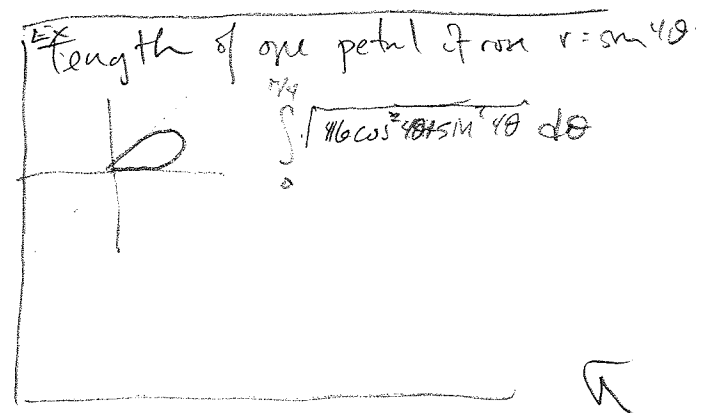 Ex
Length of one petal of rose r = sin 4θ
π/4
∫ √16cos²4θ+sin²4θ dθ
0